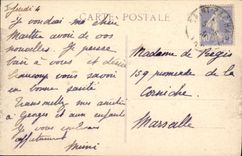 Jeudi 4
CARTE POSTALE
Je voudrai ma chère
Marthe avoir de vos
nouvelles. Je pense
bien à vous et désire
beaucoup vous savoir
en bonne santé
Transmettez mes amitiés
à Georges et aux enfants
Je vous embrasse
affectueusement
Mimi
Madame de Régis
159 promenade de la
Corniche
Marseille